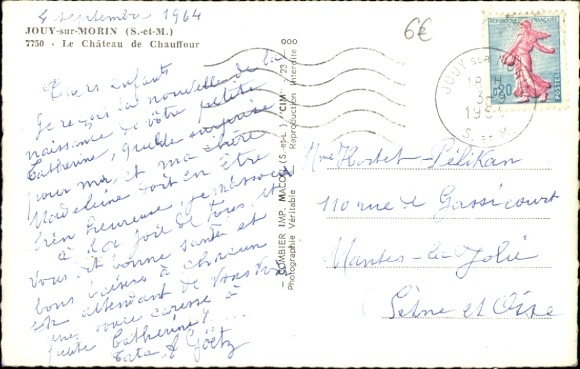 4 septembre 1964
JOUY-sur-MORIN (S.-et-M.)
7750 - Le Château de Chauffour
Chers Enfants
Je reçois la nouvelle de la
naissance de votre petite
Catherine, quelle surprise
pour moi, et ma chère
Madeleine doit en être
bien heureuse, je m'associe
à la joie de tous, et
Vous dit bonne santé et
bons baisers à chacun
en attendant de vous
une douce caresse à
petite Catherine
Tata A Göetz
COMBIER IMP. MACON (S.-et-L.) "CIM"
Photographie Véritable - Reproduction Interdite
23
6€
REPUBLIQUE FRANÇAISE
0,20
POSTES
JOUY SUR MORIN
18 H
1964
S. ET M.
Mme Hostet-Pélikan
110 rue de Gassicourt
Mantes-la-Jolie
Seine et Oise